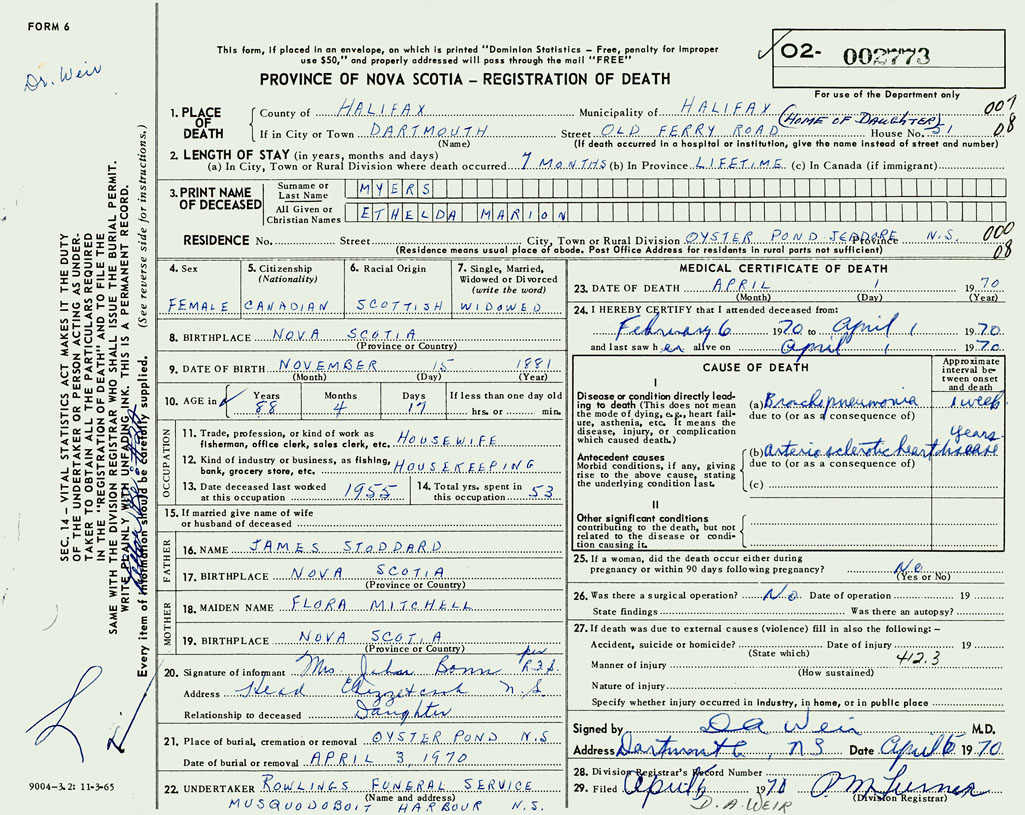 FORM 6
Dr. Weir
This form, if placed in an envelope, on which is printed "Dominion Statistics – Free, penalty for improper
use $50," and properly addressed will pass through the mail "FREE"
PROVINCE OF NOVA SCOTIA – REGISTRATION OF DEATH
02- 002773
For use of the Department only
1. PLACE OF DEATH
County of HALIFAX Municipality of HALIFAX 007
(HOME OF DAUGHTER)
If in City or Town DARTMOUTH Street OLD FERRY ROAD House No. 51 08
(Name) (If death occurred in a hospital or institution, give the name instead of street and number)
2. LENGTH OF STAY (in years, months and days)
(a) In City, Town or Rural Division where death occurred 7 MONTHS (b) In Province LIFETIME (c) In Canada (if immigrant)
3. PRINT NAME OF DECEASED
Surname or Last Name MYERS
All Given or Christian Names ETHELDA MARION
RESIDENCE No. Street City, Town or Rural Division OYSTER POND JEDDORE Province N.S. 000
(Residence means usual place of abode. Post Office Address for residents in rural parts not sufficient) 08
4. Sex
FEMALE
5. Citizenship
(Nationality)
CANADIAN
6. Racial Origin
SCOTTISH
7. Single, Married,
Widowed or Divorced
(write the word)
WIDOWED
8. BIRTHPLACE NOVA SCOTIA
(Province or Country)
9. DATE OF BIRTH NOVEMBER 15 1881
(Month) (Day) (Year)
10. AGE in Years Months Days If less than one day old
88 4 17 hrs. or min.
OCCUPATION
11. Trade, profession, or kind of work as
fisherman, office clerk, sales clerk, etc. HOUSEWIFE
12. Kind of industry or business, as fishing,
bank, grocery store, etc. HOUSEKEEPING
13. Date deceased last worked
at this occupation 1955
14. Total yrs. spent in
this occupation 53
15. If married give name of wife
or husband of deceased
FATHER
16. NAME JAMES STODDARD
17. BIRTHPLACE NOVA SCOTIA
(Province or Country)
MOTHER
18. MAIDEN NAME FLORA MITCHELL
19. BIRTHPLACE NOVA SCOTIA
(Province or Country)
20. Signature of informant Mrs. John per
Address Head Chezzetcook N.S.
Relationship to deceased Daughter
21. Place of burial, cremation or removal OYSTER POND N.S
Date of burial or removal APRIL 3, 1970
22. UNDERTAKER ROWLINGS FUNERAL SERVICE
(Name and address)
MUSQUODOBOIT HARBOUR N.S.
MEDICAL CERTIFICATE OF DEATH
23. DATE OF DEATH APRIL 1 1970
(Month) (Day) (Year)
24. I HEREBY CERTIFY that I attended deceased from:
February 6 1970 to April 1 1970
and last saw her alive on April 1 1970
CAUSE OF DEATH
Approximate
interval be-
tween onset
and death
I
Disease or condition directly lead-
ing to death (This does not mean
the mode of dying, e.g., heart fail-
ure, asthenia, etc. It means the
disease, injury, or complication
which caused death.)
(a) Bronchopneumonia 1 week
due to (or as a consequence of)
years
Antecedent causes
Morbid conditions, if any, giving
rise to the above cause, stating
the underlying condition last.
(b) arteriosclerotic heart disease
due to (or as a consequence of)
(c)
II
Other significant conditions
contributing to the death, but not
related to the disease or condi-
tion causing it.
25. If a woman, did the death occur either during
pregnancy or within 90 days following pregnancy? No
(Yes or No)
26. Was there a surgical operation? No Date of operation 19
State findings Was there an autopsy?
27. If death was due to external causes (violence) fill in also the following: –
Accident, suicide or homicide? Date of injury 19
(State which) 412.3
Manner of injury
(How sustained)
Nature of injury
Specify whether injury occurred in industry, in home, or in public place
Signed by D A Weir M.D.
Address Dartmouth, NS Date April 6 1970
28. Division Registrar's Record Number
29. Filed April 6 1970
D. A. WEIR (Division Registrar)
SEC. 14 – VITAL STATISTICS ACT MAKES IT THE DUTY
OF THE UNDERTAKER OR PERSON ACTING AS UNDER-
TAKER TO OBTAIN ALL THE PARTICULARS REQUIRED
IN THE "REGISTRATION OF DEATH" AND TO FILE THE
SAME WITH THE DIVISION REGISTRAR WHO SHALL ISSUE THE BURIAL PERMIT.
WRITE PLAINLY WITH UNFADING INK. THIS IS A PERMANENT RECORD.
Every item of information should be carefully supplied. (See reverse side for instructions.)
9004-3.2: 11-3-65